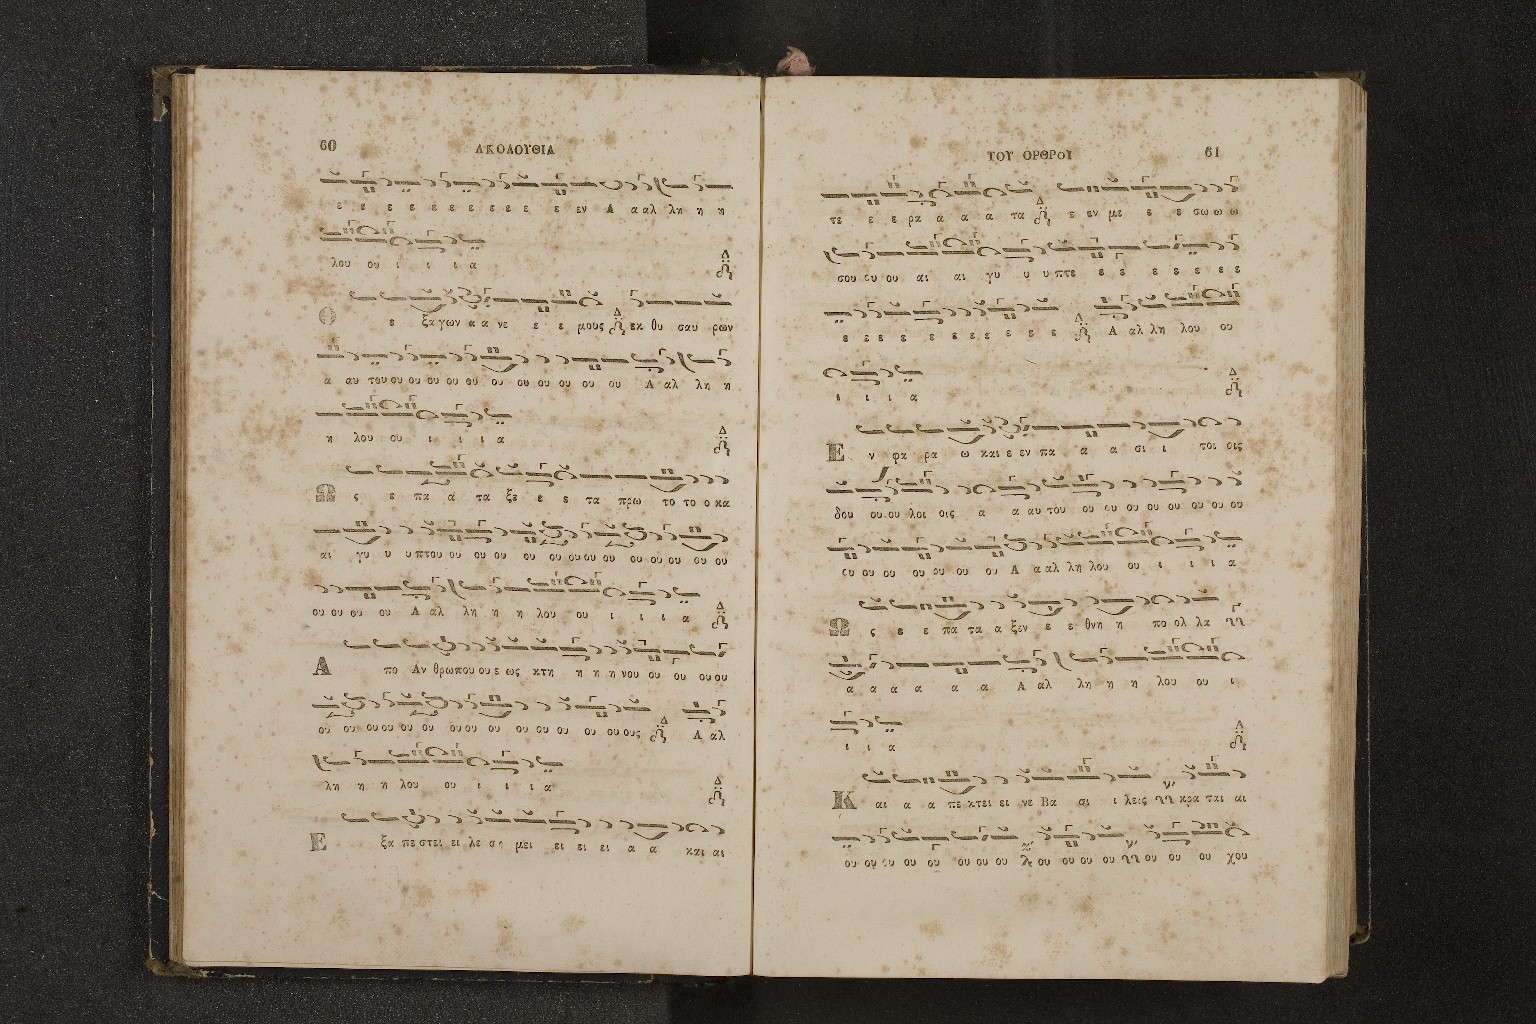 60 ΑΚΟΛΟΥΘΙΑ
ε ε ε ε ε ε ε ε ε ε ε εν Α α αλ λη η η
λου ου ι ι ι α
Ο ε ξα γων α α νε ε ε μους εκ θυ σαυ ρων
α αυ του ου ου ου ου ου ου ου ου ου ου ου ου Α αλ λη η
η λου ου ι ι ι α
Ω ς ε πα α τα ξε ε ε τα πρω το το ο κα
αι γυ υ υπτου ου ου ου ου ου ου ου ου ου ου ου ου ου
ου ου ου ου Α αλ λη η η λου ου ι ι ι α
Α πο Αν θρωπου ου ε ως κτη η η η νου ου ου ου ου
ου ου ου ου ου ου ου ου ου ου ου ου ου ου ου ους Α αλ
λη η η λου ου ι ι ι α
Ε ξα πε στει ει λε ση μει ει ει ει α α και αι
ΤΟΥ ΟΡΘΡΟΥ 61
τε ε ε ρα α α α τα ε εν με ε ε σω ω ω
σου ου ου αι αι γυ υ υ πτε ε ε ε ε ε ε ε
ε ε ε ε ε ε ε ε ε ε ε Α αλ λη λου ου
ι ι ι α
Ε ν φα ρα ω και ε εν πα α α σι ι τοι οις
δου ου ου λοι οις α α αυ του ου ου ου ου ου ου ου ου
ου ου ου ου ου ου ου Α α αλ λη λου ου ι ι ι α
Ω ς ε ε πα τα α ξεν ε ε θνη η πο ολ λα
α α α α α α Α αλ λη η η λου ου ι
ι ι α
Κ αι α α πε κτει ει νε Βα σι ι λεις κρα ται αι
ου ου ου ου ου ου ου ου ου ου ου ου ου ου ου χου